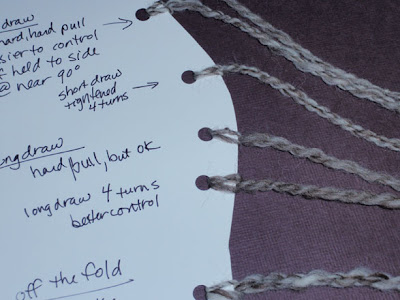 draw
hard, hard pull
sier to control
f held to side
@ near 90°
short draw
tightened
4 turns
ngdraw
hard pull, but ok
longdraw 4 turns
better control
off the fold